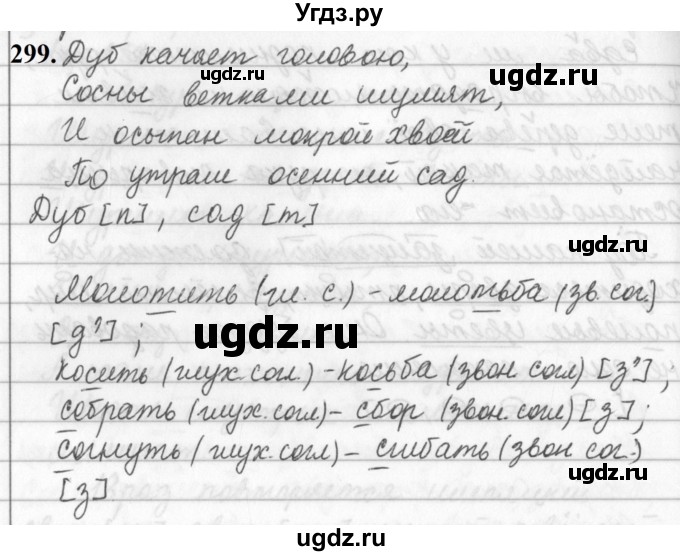 Угдз.ру
299. Дуб качает головою,
Сосны ветками шумят,
И осыпан мокрой хвоей
По утрам осенний сад.
Дуб [п], сад [т]
Молотить (гл. с.) - молотьба (зв. сог.)
[д']; 
косить (глух. согл.) - косьба (звон. согл) [з'],
собрать (глух. согл) - сбор (звон. согл) [з];
Согнуть (глух. согл) - сгибать (звон сог.)
[з]
ugdz.ru
ugdz.ru
ugdz.ru
ugdz.ru
ugdz.ru
ugdz.ru
ugdz.ru
ugdz.ru
ugdz.ru